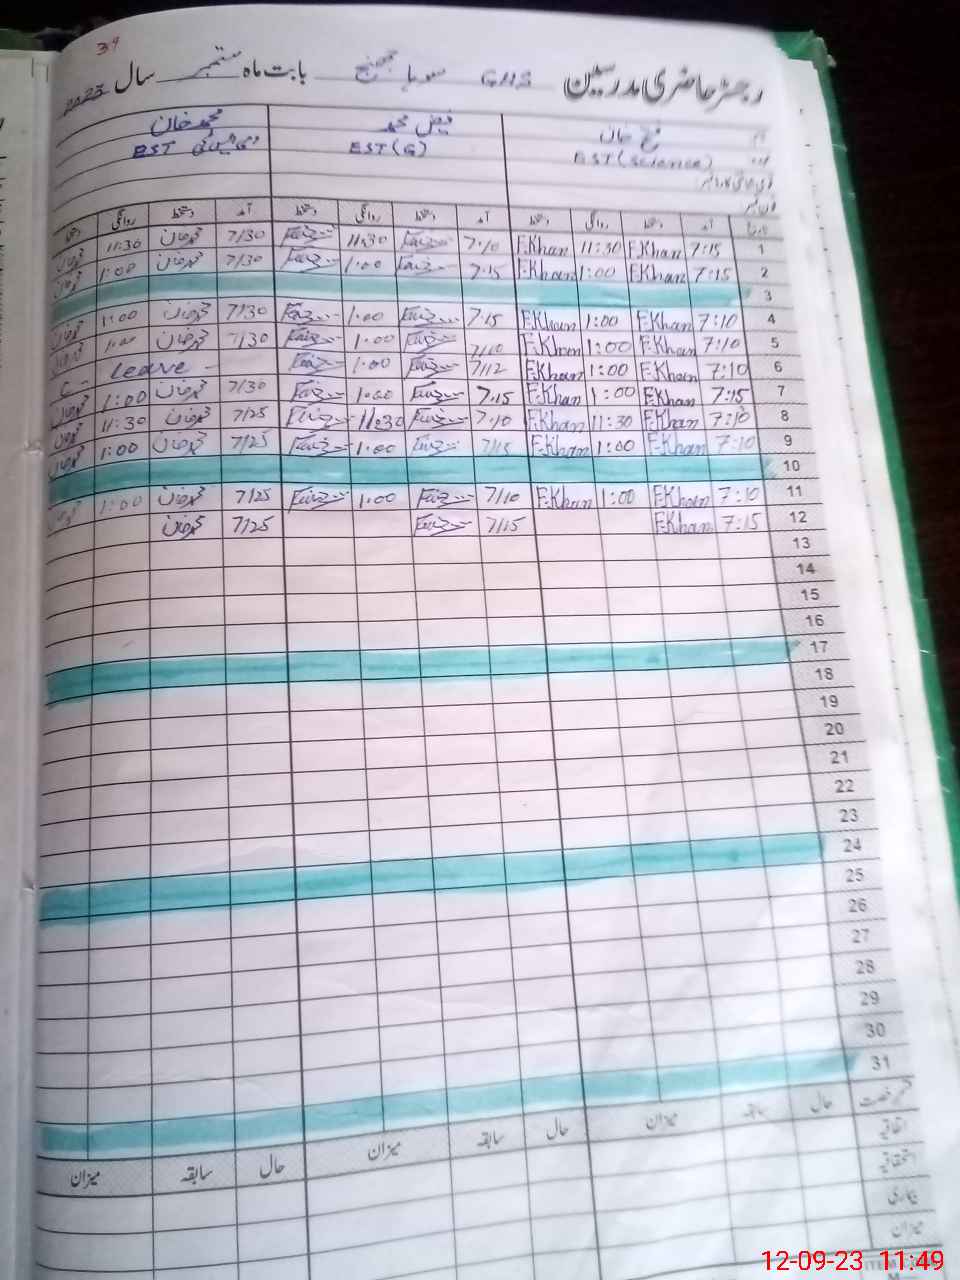 39
رجسٹر حاضری مدرسین GHS بابت ماہ ستمبر سال 2023
فتح خان فیض محمد محمد خان
EST (Science) EST (G) EST
تاریخ آمد دستخط روانگی دستخط آمد دستخط روانگی دستخط آمد دستخط روانگی دستخط
1 7:15 F.Khan 11:30 F.Khan 7:10 11:30 7/30 محمد خان 11:30
2 7:15 F.Khan 1:00 F.Khan 7:15 1:00 7/30 محمد خان 1:00
3
4 7:10 F.Khan 1:00 F.Khan 7:15 1:00 7/30 محمد خان 1:00
5 7:10 F.Khan 1:00 F.Khan 7/10 1:00 7/30 محمد خان 1:00
6 7:10 F.Khan 1:00 F.Khan 7/12 1:00 C - Leave -
7 7:15 F.Khan 1:00 F.Khan 7:15 1:00 7/30 محمد خان 1:00
8 7:10 F.Khan 11:30 F.Khan 7:10 11:30 7/25 محمد خان 11:30
9 7:10 F.Khan 1:00 F.Khan 7/15 1:00 7/25 محمد خان 1:00
10
11 7:10 F.Khan 1:00 F.Khan 7/10 1:00 7/25 محمد خان 1:00
12 7:15 F.Khan 7/15 7/25 محمد خان
13
14
15
16
17
18
19
20
21
22
23
24
25
26
27
28
29
30
31
حال سابقہ میزان حال سابقہ میزان حال سابقہ میزان
اتفاقیہ
استحقاقیہ
بیماری
میزان
12-09-23 11:49